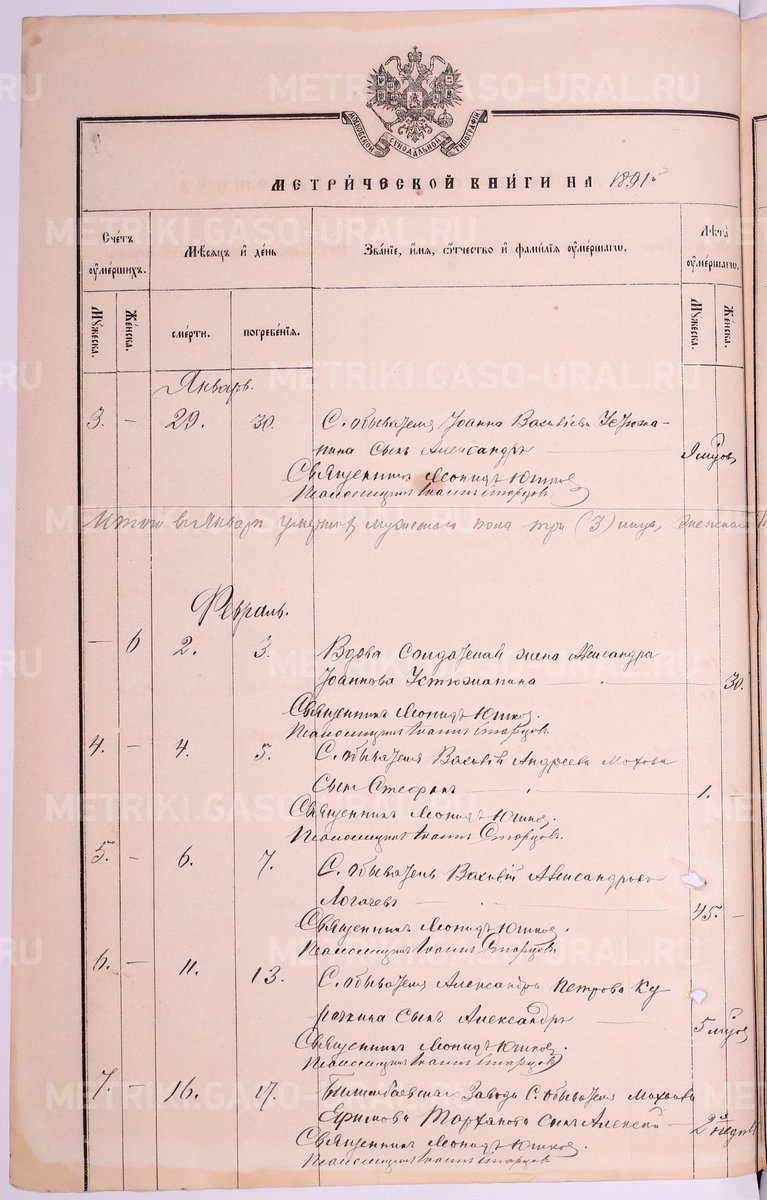 МОСКОВСКОЙ СѴНОДАЛЬНОЙ ТИПОГРАФІИ
МЕТРИЧЕСКОЙ КНИГИ НА 1891й
Счетъ умершихъ.
Мѣсяцъ и день
Званіе, имя, отчество и фамилія умершаго.
Лѣта умершаго.
Мужеска.
Женска.
смерти.
погребенія.
Мужеска.
Женска.
Январь.
3. — 29. 30. С. Обывателя Іоанна Васильева Устюжа-
нина сынъ Александръ — 9 мцовъ
Священникъ Леонидъ Юшков
Псаломщикъ Іоаннъ Старцовъ
Итого въ Январѣ умершихъ мужескаго пола три (3) лица, женскаго
Февраль.
— 6 2. 3. Вдова солдатская жена Александра
Іоаннова Устюжанина — 30.
Священникъ Леонидъ Юшков.
Псаломщикъ Іоаннъ Старцовъ.
4. — 4. 5. С. Обывателя Василія Андреева Мохова
сынъ Стефанъ — 1. —
Священникъ Леонидъ Юшков.
Псаломщикъ Іоаннъ Старцовъ.
5. — 6. 7. С. Обыватель Василій Александровъ
Логачевъ — 45. —
Священникъ Леонидъ Юшков.
Псаломщикъ Іоаннъ Старцовъ.
6. — 11. 13. С. Обывателя Александра Петрова Ку-
рачкина сынъ Александръ — 5 мцов
Священникъ Леонидъ Юшков.
Псаломщикъ Іоаннъ Старцовъ
7. — 16. 17. Билимбаевскаго Завода С. Обывателя
Ефимова Тарханова сынъ Алексей — 2 недѣл
Священникъ Леонидъ Юшков.
Псаломщикъ Іоаннъ Старцовъ.
METRIKI.GASO-URAL.RU